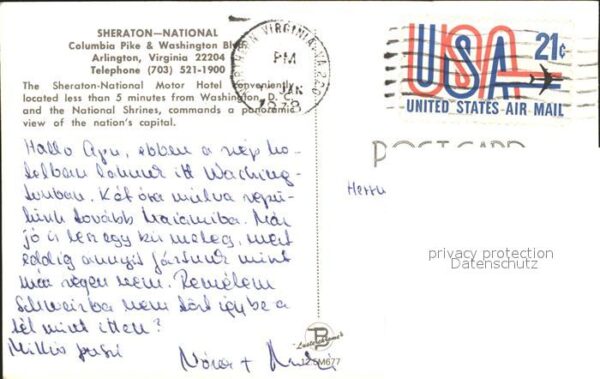 SHERATON—NATIONAL
Columbia Pike & Washington Bl
Arlington, Virginia 22204
Telephone (703) 521-1900
The Sheraton-National Motor Hotel conveniently
located less than 5 minutes from Washington, D.C.
and the National Shrines, commands a panoramic
view of the nation's capital.
NORTHERN VIRGINIA, VA 220
PM
JAN
1978
USA 21¢
UNITED STATES AIR MAIL
POST CARD
Hallo Apu, ebben a szép ho-
telben lakunk itt Washing-
tonban. Két óra múlva repü-
lünk tovább Miamiba. Már
jó is lesz egy kis meleg, mert
eddig annyit fáztunk mint
már régen nem. Remélem
Schweizba nem tört így be a
tél mint itten?
Millió puszi
Nóra +
Herrn
privacy protection
Datenschutz
Lusterchrome
12.5M677